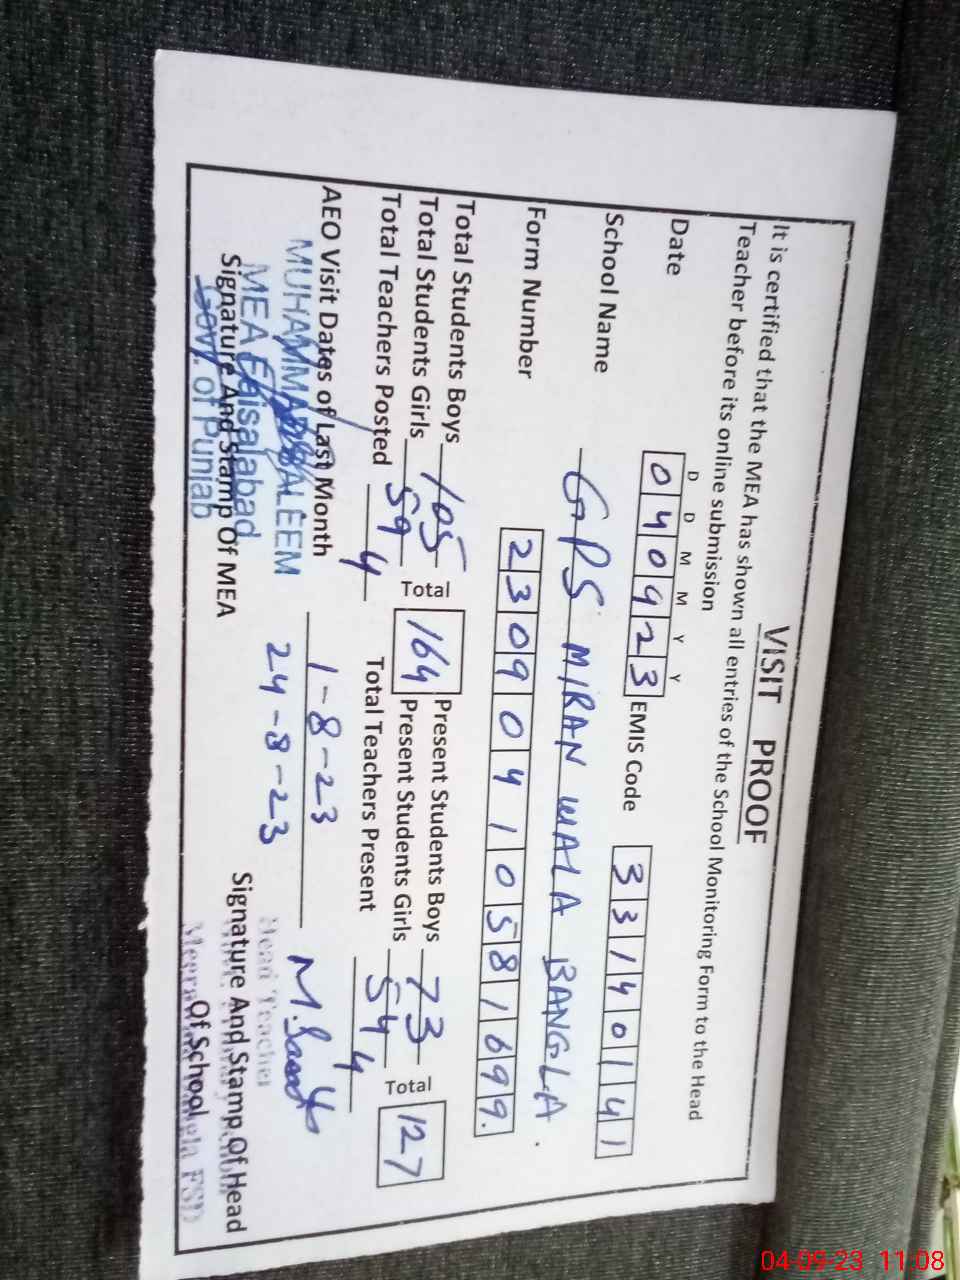 VISIT PROOF
It is certified that the MEA has shown all entries of the School Monitoring Form to the Head
Teacher before its online submission
D D M M Y Y
Date 040923 EMIS Code 33140141
School Name GPS MIRAN WALA BANGLA.
Form Number 23090410581699.
Total Students Boys 105 Total 164 Present Students Boys 73 Total 127
Total Students Girls 59 Present Students Girls 54
Total Teachers Posted 4 Total Teachers Present 4
AEO Visit Dates of Last Month 1-8-23
24-8-23
MUHAMMAD SALEEM
MEA Faisalabad
Govt. of Punjab
Signature And Stamp Of MEA
Head Teacher
Signature And Stamp Of Head
Of School
FSD
04-09-23 11:08